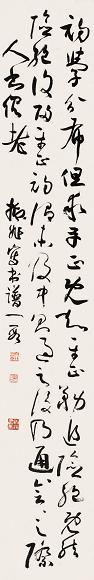 初學分布但求平正既知平正務追險絕既能
險絕復歸平正初謂未及中則過之後乃通會之際
人書俱老
書譜一段